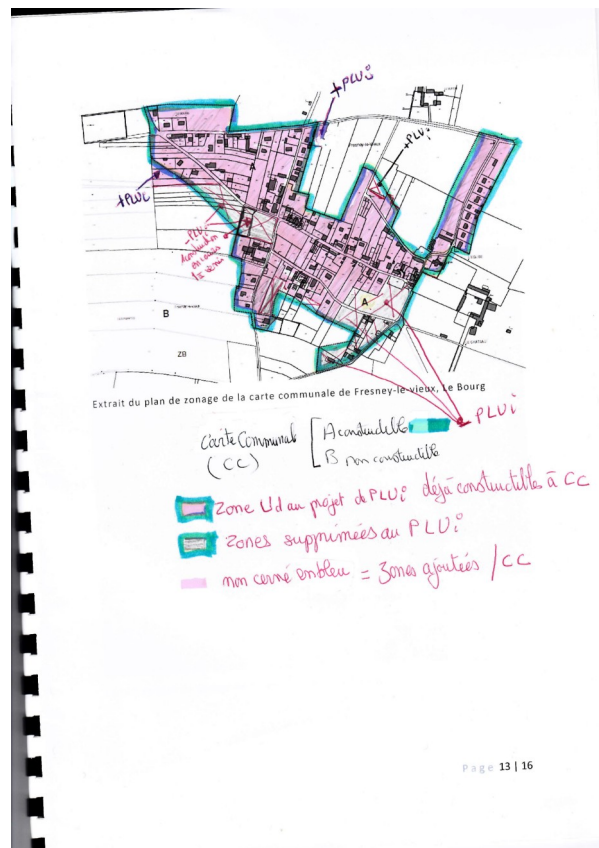 + PLUi
- PLUi
+ PLUi
- PLUi
Construction
en cours
A
B
ZB
Extrait du plan de zonage de la carte communale de Fresney-le-vieux, Le Bourg
- PLUi
Carte Communal
(CC)
A constructible
B non constructible
Zone Ud au projet de PLUi déjà constructibles à CC
Zones supprimées au PLUi
non cerné en bleu = Zones ajoutées / CC
Page 13 | 16